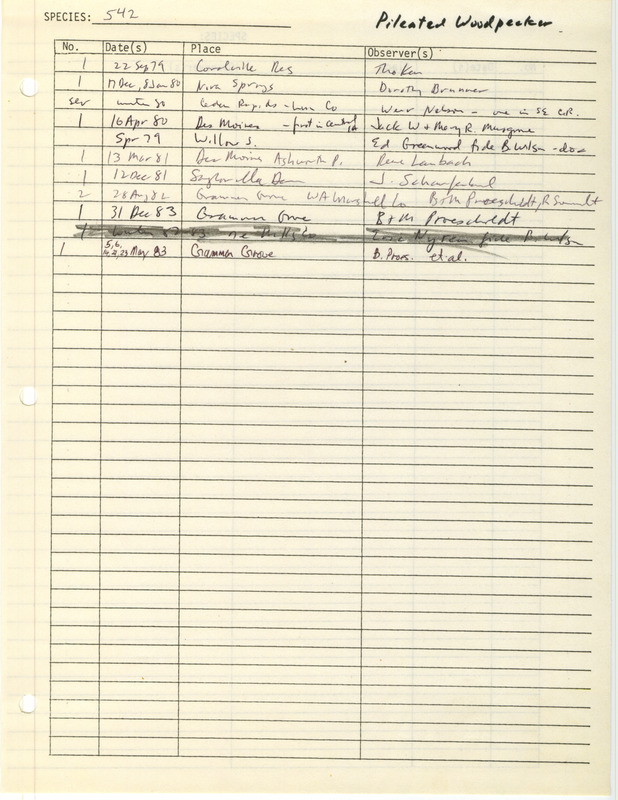 SPECIES: 542 Pileated Woodpecker
No. Date(s) Place Observer(s)
1 22 Sep 79 Coralville Res
1 17 Dec, 8 Jan 80 Nora Springs Dorothy Brunner
sev winter 80 Cedar Rapids - Linn Co Weir Nelson - one in SE C.R.
1 16 Apr 80 Des Moines - first in central IA Jack W + Mary R. Musgrove
Spr 79 Willow S. Ed Greenwood fide B Wilson - doc
1 13 Mar 81 Des Moines Ashworth P. Rene Laubach
1 12 Dec 81 Saylorville Dam J.
2 28 Aug 82 Grammer Grove W Marshall Co B+M Proescholdt, R
1 31 Dec 83 Grammer Grove B+M Proescholdt
1
1 5, 6, 14, 21, 23 May 83 Grammer Grove B. Proes. et al.